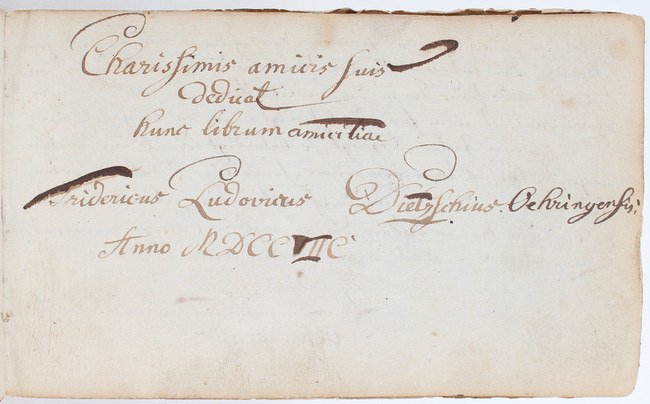 Charissimis amicis suis
dedicat
hunc librum amicitiae
Fridericus Ludovicus Dietzschius. Oehringensis.
Anno MDCCVIIC